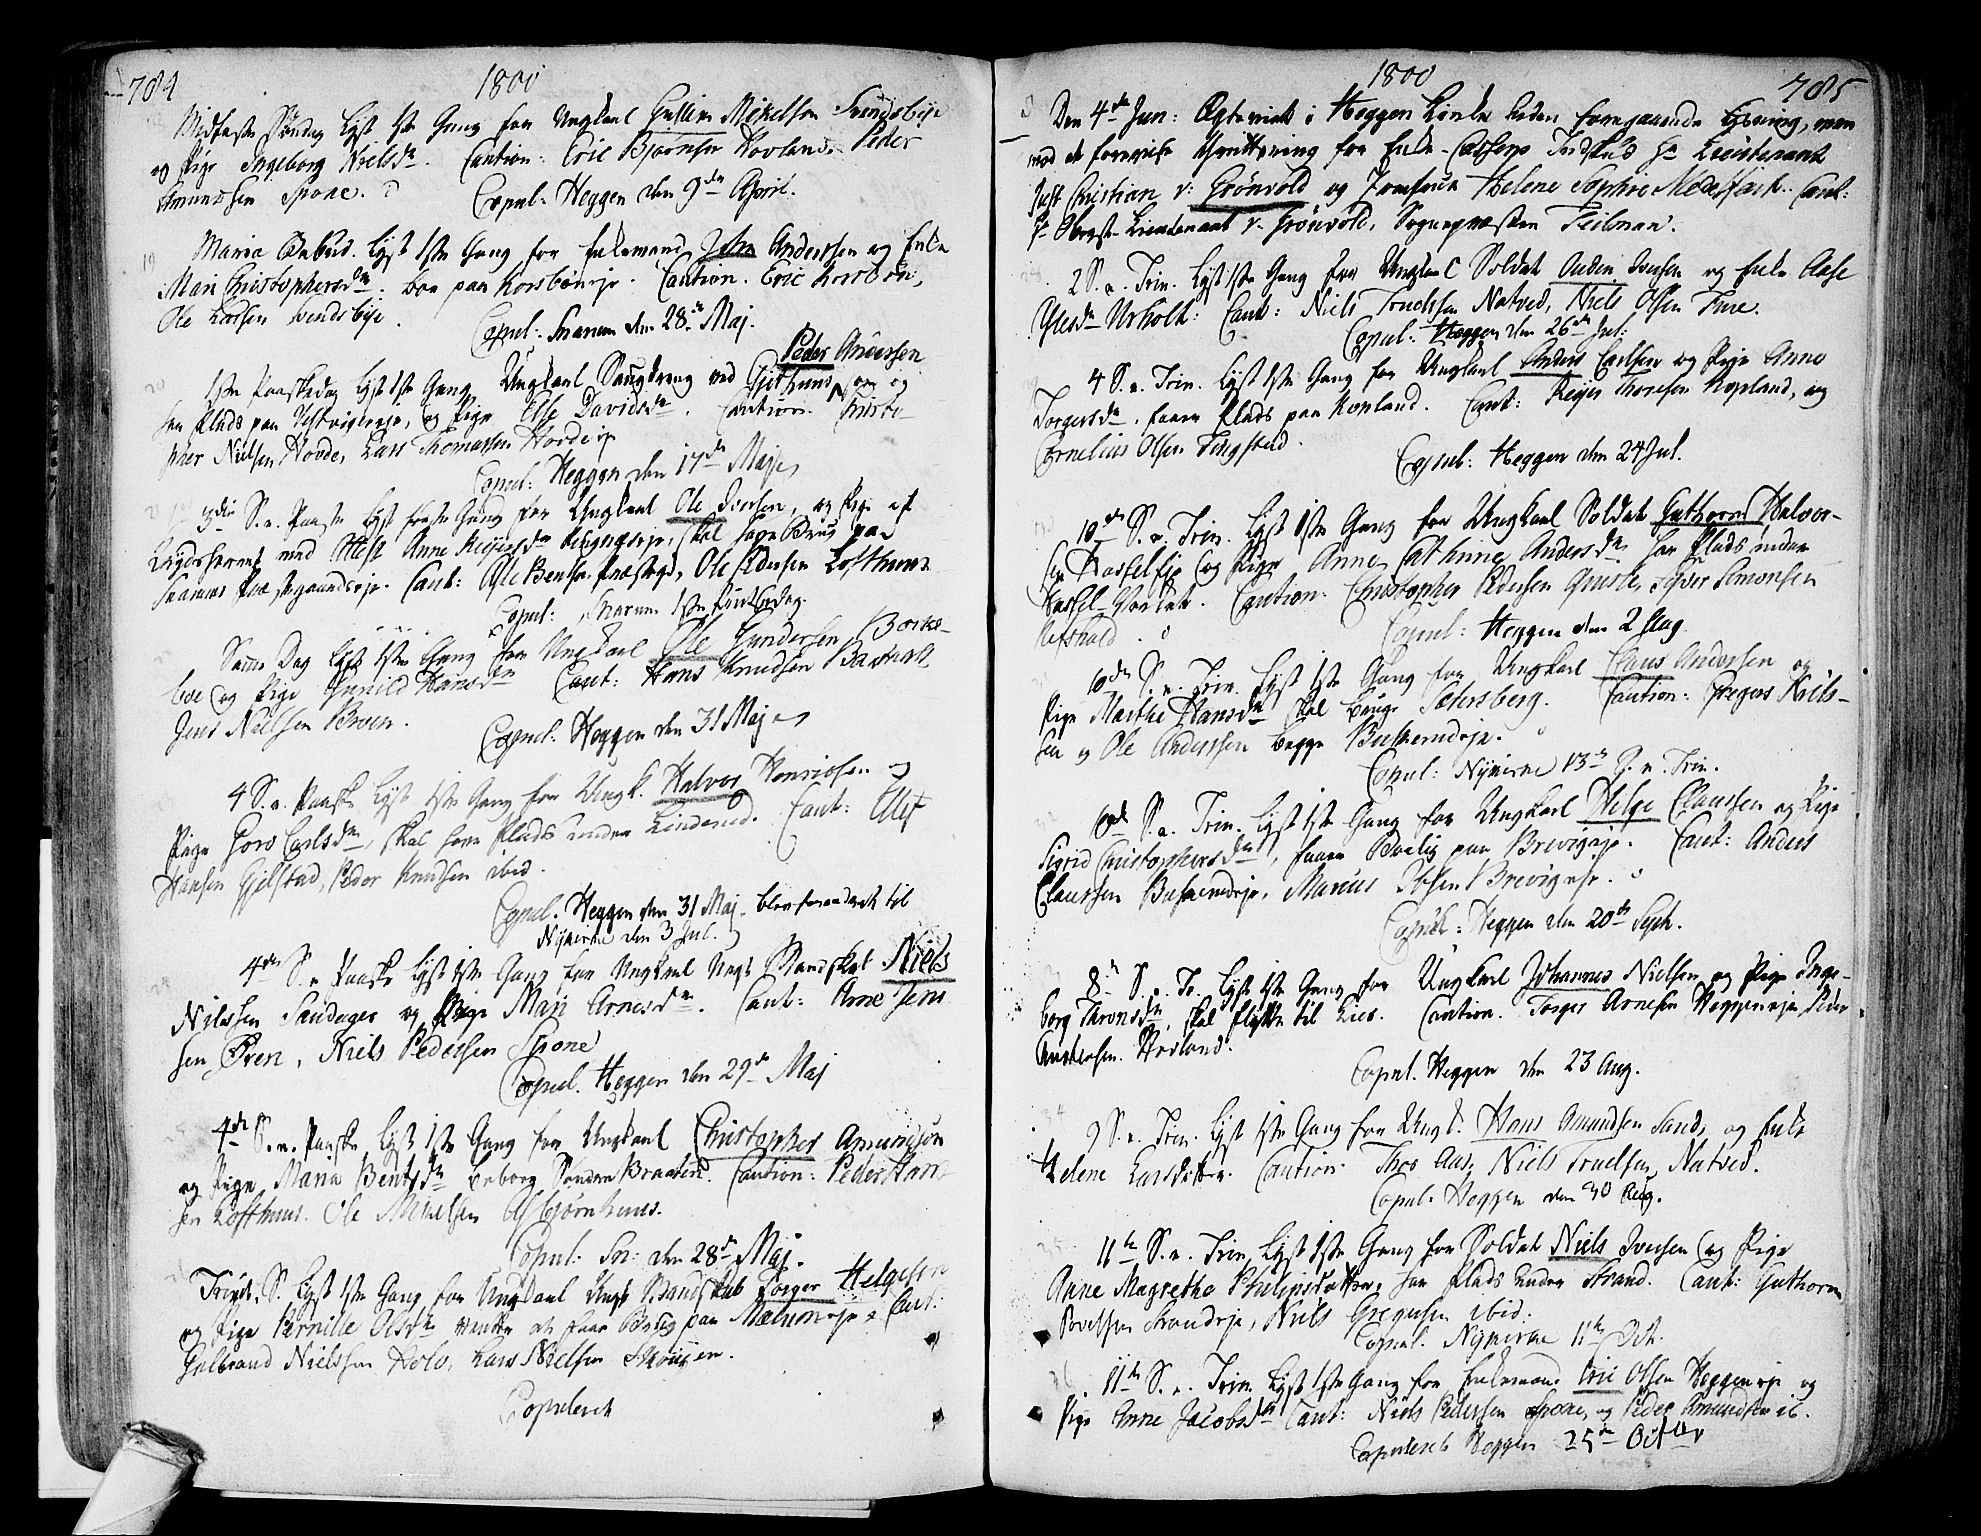 704
1800
Midfaste Søndag Lyst 1ste Gang for Ungkarl Gullien Mikelsen Svendsbye
og Pige Ingeborg Nielsdr. Caution: Eric Bjørnsen Hovland. Peder
Amundsen Spone.
Copul: Heggen den 9de April.
19
Maria Bebud. Lyst 1ste Gang for Enkemand John Andersen og Enke
Mari Christophersdr. boe paa Korsbøneje. Caution. Eric Korsbøn,
Ole Larsen Svendsbye.
Copul: Snarum den 28de Maj.
Peder Andersen
20
1ste Paaskedag Lyst 1ste Gang Ungkarl Saugdreng ved Gjethuus som og
har Plads paa eje, og Pige Else Davidsdr. Caution. Christo
pher Nielsen Hovde, Lars Thomassen Hovdeje
Copul: Heggen den 17de Maje
21
3die S. e. Paaske Lyst første Gang for Ungkarl Ole Iversen, og Pige af
med Hest Anne Reyersdr eje, skal have Brug paa
Snarums Præstegaardseje. Cant: Ole Bentsen Præstegd, Ole Pedersen Lofthuus
Copul: Snarum 1ste Pintsedag.
Samme Dag Lyst 1ste Gang for Ungkarl Ole Gundersen
boe og Pige Gunild Hansdr Caut: Hans Knudsen
Jens Nielsen Broen.
Copul: Heggen den 31 Maje
4 S. e. Paaske Lyst 1ste Gang for Ungk. Halvor Henrichsen og
Pige Goro Carlsdr, skal have Plads under Linderud. Caut: Ellef
Hansen Gjelstad, Peder Knudsen ibid.
Copul. Heggen den 31 Maj. blev forandret til
Nykirke den 3 Jul.
4de S. e Paaske Lyst 1ste Gang for Ungkarl Ungt Mandskab Niels
Nilssen Sandager og Pige Mari Arnesdr. Caut: Arne Jens
sen Øren, Niels Pedersen Spone
Copul. Heggen den 29de Maj
4de S. e. Paaske Lyst 1ste Gang for Ungkarl Christopher Amundsen
og Pige Maria Bentsdr beboer Søndre Braaten. Caution: Peder Han
sen Lofthuus. Ole Mikelsen Asbjørnhuus.
Copul: Sn: den 28de Maj.
Trinit. S. Lyst 1ste Gang for Ungkarl Ungt Mandskab Torger Helgesen
og Pige Pernille Olsdr venter at faae Bolig paa Mælumeje. Caut.
Gulbrand Nielssen Holo, Lars Nielsen Skouen.
Copuleret
1800
705
Den 4de Jun: Copuleret i Heggen Kirke uden foregaaende Lysning, men
med foreviist for Enke-Cassens Indskud Hr Lieutenant
Just Christian v: Grønvold og Jomfrue Helene Sophie Caut:
Hr Obrist-Lieutenant v. Grønvold, Sognepræsten Feilman.
28
2 S. e. Trin. Lyst 1ste Gang for Ungkarl Soldat Ouden Iversen og Enke Aase
Olesdr Urholt: Caut: Niels Truelsen Natved, Niels Olsen Fure.
Copul: Heggen den 26de Jul:
29
4 S. e. Trin. Lyst 1ste Gang for Ungkarl Anders Carlsen og Pige Anne
Torgersdr, faaer Plads paa Kopland. Caut: Reyer Thoresen Kopland, og
Cornelius Olsen Tingstad.
Copul: Heggen den 24 Jul.
10de S. e. Trin. Lyst 1ste Gang for Ungkarl Soldat Guthorm Halvor-
sen Hasseleje og Pige Anne Cathrine Andersdr, har Plads under
Hassel-Hovdet. Caution: Christopher Pedersen Syver Simonsen
Refshald.
Copul: Heggen den 2 Aug.
6de S. e. Trin. Lyst 1ste Gang for Ungkarl Claus Andersen og
Pige Marthe Hansdr skal bruge Sætersberg. Caution: Gregers Niels-
sen og Ole Anderssen begge Buskerudeje.
Copul: Nykirke 13de S. e. Trin.
32
6de S. e. Trin. Lyst 1ste Gang for Ungkarl Helge Claussen og Pige
Sigrid Christophersdr, faaer Bolig paa Brevigeje. Caut: Anders
Claussen Buskerudeje, Marius Ibsen Brevigeje.
Copul: Heggen den 20de Sept.
8de S. e. Tr. Lyst 1ste Gang for Ungkarl Johannes Nielsen og Pige Inge-
borg Thronsdr, skal flytte til Lier. Caution. Torger Arnesen Heggeneje Peder
Andersen Hovland.
Copul. Heggen den 23 Aug.
34
9 S. e. Trin. Lyst 1ste Gang for Ungk. Hans Amundsen Sand, og Enke
Helene Larsdatter. Caution. Thos Aas, Niels Truelsen, Natved.
Copul. Heggen den 30 Aug.
35
11te S. e. Trin. Lyst 1ste Gang for Soldat Niels Iversen og Pige
Anne Magrethe Philipsdatter, har Plads under Strand. Caut: Guthorm
Povelsen Strandeje, Niels Gregersen ibid.
Copul. Nykirke 11te Oct.
36
11te S. e. Trin. Lyst 1ste Gang for Enkemand Eric Olsen Heggeneje og
Pige Anne Jacobsdr Caut: Niels Pedersen Spone, og Peder Amundsen ib.
Copuleret Heggen 25de October